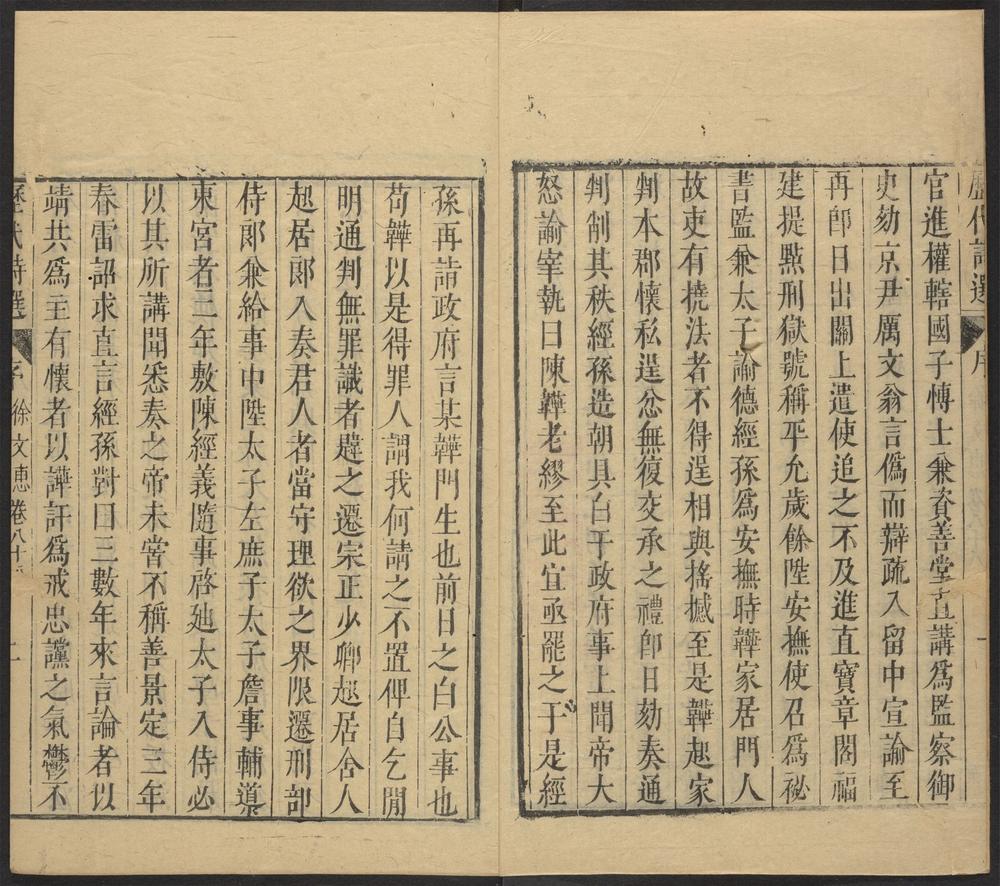 歷代詩選 序
官進權轄國子博士兼資善堂直講爲監察御
史劾京尹厲文翁言僞而辯疏入留中宣諭至
再卽日出關上遣使追之不及進直寶章閣福
建提點刑獄號稱平允歲餘陞安撫使召爲祕
書監兼太子諭德經孫爲安撫時鞾家居門人
故吏有撓法者不得逞相與搖撼至是鞾起家
判本郡懷私逞忿無復交承之禮卽日劾奏通
判削其秩經孫造朝具白于政府事上聞帝大
怒諭宰執曰陳鞾老繆至此宜亟罷之于是經
孫再請政府言某鞾門生也前日之白公事也
苟鞾以是得罪人謂我何請之不置俾自乞閒
明通判無罪識者韙之遷宗正少卿起居舍人
起居郎入奏君人者當守理欲之界限遷刑部
侍郎兼給事中陞太子左庶子太子詹事輔導
東宮者三年敷陳經義隨事啓廸太子入侍必
以其所講聞悉奏之帝未嘗不稱善景定三年
春雷詔求直言經孫對曰三數年來言論者以
靖共爲主有懷者以譁訐爲戒忠讜之氣鬱不
歷代詩選 序 徐文惠 卷八十 二